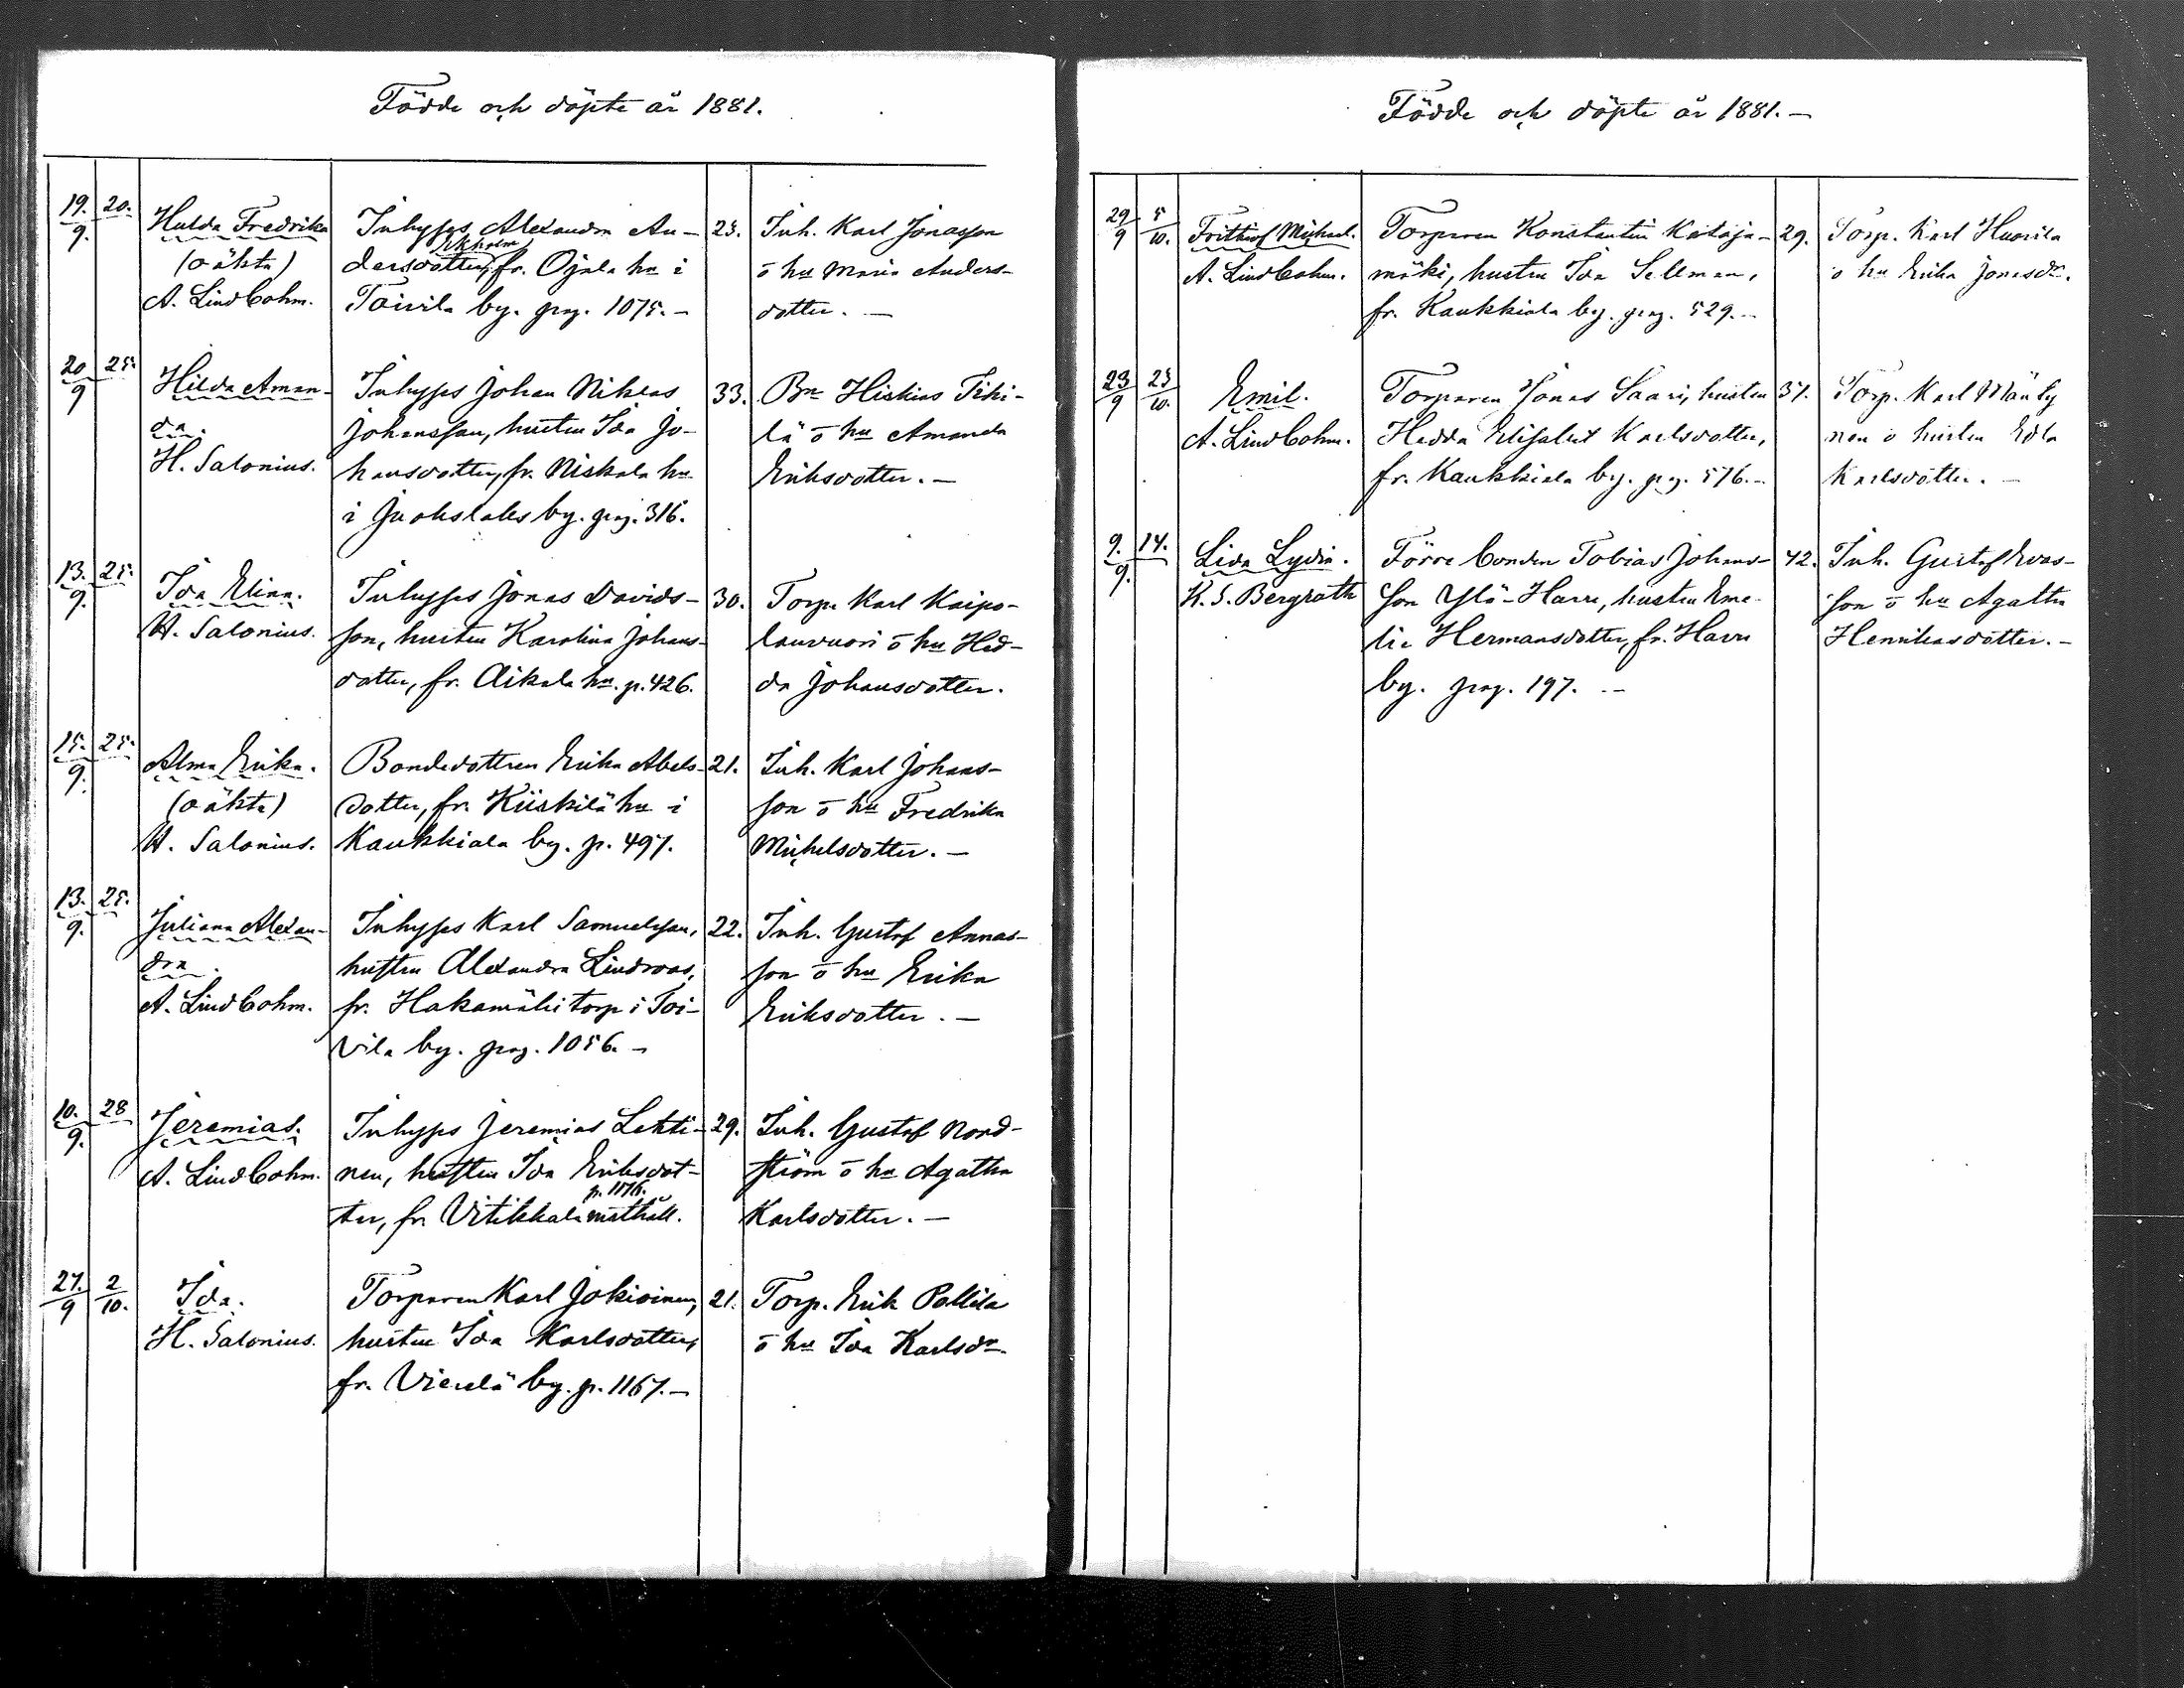 Födde och döpte år 1881.
19. 20.
9.
Hulda Fredrika
(oäkta)
A. Lindbohm.
Inhyses Alexandra An-
Ekholm
dersdotter, fr. Ojala hn i
Toivila by. pag. 1075.-
23.
Inh. Karl Jonasson
o hu Maria Anders-
dotter. -
20 25.
9
Hilda Aman-
da.
H. Salonius.
Inhyses Johan Niklas
Johansson, hustru Ida Jo-
hansdotter, fr. Niskala hn
i Juokslaks by. pag. 316.
33.
Bn Hiskias Tihi-
lä o hu Amanda
Eriksdotter. -
13. 25.
9.
Ida Elina.
H. Salonius.
Inhyses Jonas Davids-
son, hustru Karolina Johans-
dotter, fr. Aikala hn. p. 426.
30.
Torp. Karl Kaipo-
lanvuori o hu Hed-
da Johansdotter.
15. 25.
9.
Alma Erika.
(oäkta)
H. Salonius.
Bondedottren Erika Abels-
dotter, fr. Kiiskilä hn i
Kaukkiala by. p. 497.
21.
Inh. Karl Johans-
son o hu Fredrika
Michelsdotter. -
13. 25.
9.
Juliana Alexan-
dra.
A. Lindbohm.
Inhyses Karl Samuelsson,
hustru Alexandra Lindroos,
fr. Hakamäki torp i Toi-
vila by. pag. 1056. -
22.
Inh. Gustaf Annas-
son o hu Erika
Eriksdotter. -
10. 28
9.
Jeremias.
A. Lindbohm.
Inhyses Jeremias Lehti-
nen, hustru Ida Eriksdot-
p. 1176.
ter, fr. Vitikkala mathåll.
29.
Inh. Gustaf Nord-
ström o hu Agatha
Karlsdotter. -
27. 2
9 10.
Ida.
H. Salonius.
Torparen Karl Jokioinen,
hustru Ida Karlsdotter,
fr. Vierelä by. p. 1167. -
21.
Torp. Erik Pollila
o hu Ida Karlsdr.
Födde och döpte år 1881. -
29 5
9 10.
Frithiof Michael.
A. Lindbohm.
Torparen Konstantin Kataja-
mäki, hustru Ida Selleman,
fr. Kaukkiala by. pag. 529. -
29.
Torp. Karl Huorila
o hu Erika Jonasdr.
23 23
9 10.
Emil.
A. Lindbohm.
Torparen Jonas Saari, hustru
Hedda Elisabet Karlsdotter,
fr. Kaukkiala by. pag. 576. -
37.
Torp. Karl Mänty
nen o hustru Edla
Karlsdotter. -
9. 14.
9.
Lida Lydia.
K. S. Bergroth
Förre bonden Tobias Johans-
son Ylä-Harre, hustru Eme-
lie Hermansdotter, fr. Harre
by. pag. 197. -
42.
Inh. Gustaf Evas-
son o hu Agatha
Henriksdotter. -